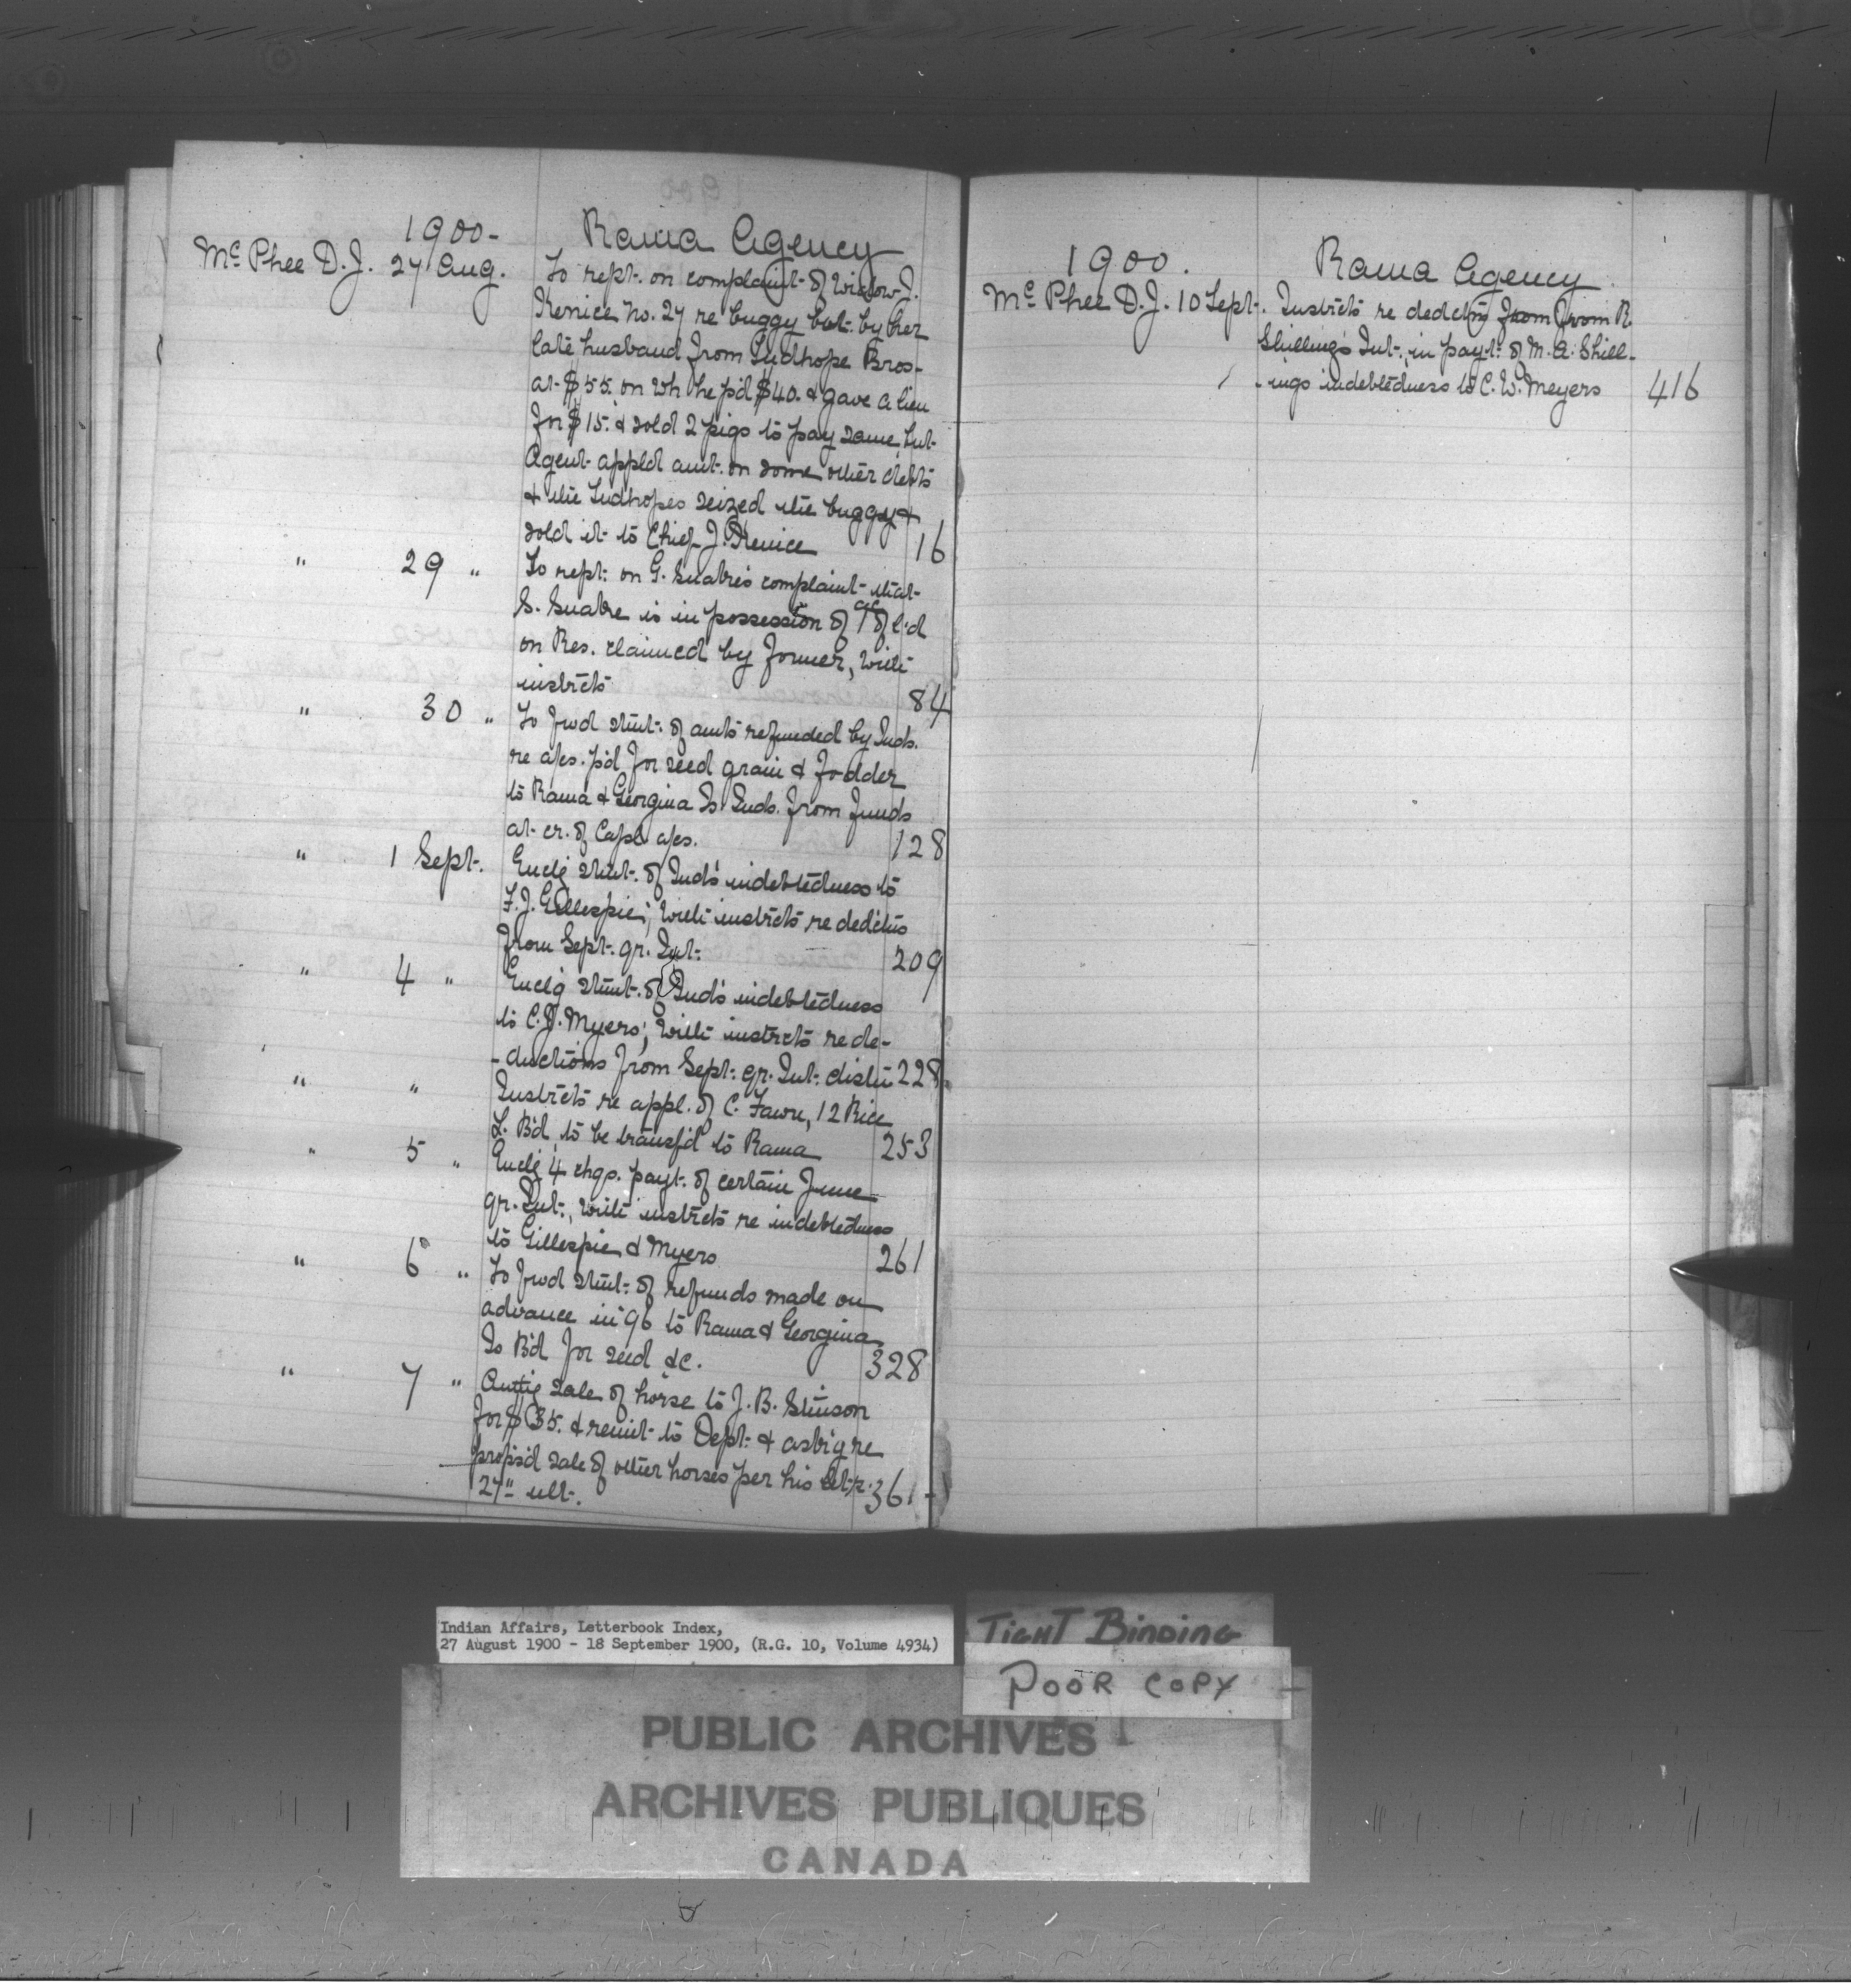 1900- Rama Agency
McPhee D.J. 27 Aug. To rept. on complaint of Widow J.
Kenice No. 27 re buggy bot. by her
late husband from Tudhope Bros.
at $55. on wh he p'd $40. & gave a lien
for $15. & sold 2 pigs to pay same, but
Agent appl'd amt. on some other debts
& the Tudhopes seized the buggy &
sold it to Chief J. Kenice 16
" 29 " To rept. on G. Snake's complaint that
S. Snake is in possession of 1 ac of l'd
on Res. claimed by former, with
instrcts 84
" 30 " To fwd stmt. of amts refunded by Inds.
re a/cs. p'd for seed grain & fodder
to Rama & Georgina Is. Inds. from funds
at cr. of Capl a/cs. 128
" 1 Sept. Enclg stmt. of Ind's indebtedness to
F.J. Gillespie; with instrcts re dedctns
from Sept. qr. Int. 209
" 4 " Enclg stmt. of Ind's indebtedness
to C.J. Myers; with instrcts re de-
-ductions from Sept. qr. Int. distn 228
" " Instrcts re appl. of C. Fawn, 12 Rice
L. B'd, to be transf'd to Rama 253
" 5 " Enclg 4 chqs. payt. of certain June
qr. Int., with instrcts re indebtedness
to Gillespie & Myers 261
" 6 " To fwd stmt. of refunds made on
advance in '96 to Rama & Georgina
Is B'd for seed &c. 328
" 7 " Authg sale of horse to J.B. Stinson
for $35. & remit to Dept. & askig re
prop's'd sale of other horses per his let.
27" ult. 361-
1900. Rama Agency
McPhee D.J. 10 Sept. Instrcts re dedctns from R.
Shilling's Int. in payt. of M.A. Shill-
-ings indebtedness to C.W. Meyers 416
Indian Affairs, Letterbook Index,
27 August 1900 - 18 September 1900, (R.G. 10, Volume 4934)
TIGHT BINDING
POOR COPY
PUBLIC ARCHIVES
ARCHIVES PUBLIQUES
CANADA